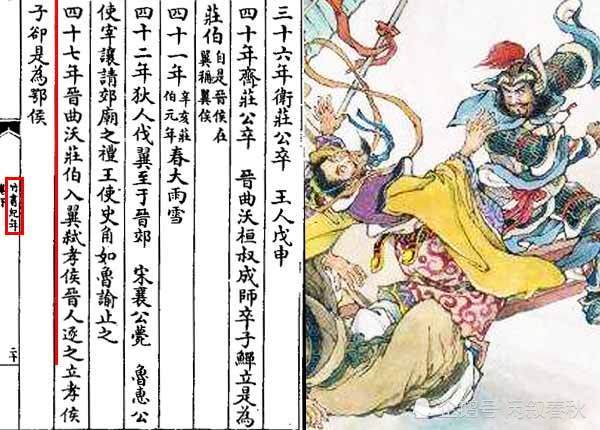 三十六年衛莊公卒 王人戍申
四十年齊莊公卒 晉曲沃桓叔成師卒子鱓立是為
莊伯 自是晉侯在翼稱翼侯
四十一年 辛亥莊伯元年 春大雨雪
四十二年狄人伐翼至于晉郊 宋襄公薨 魯惠公
使宰讓請郊廟之禮王使史角如魯諭止之
四十七年晉曲沃莊伯入翼弒孝侯晉人逐之立孝侯
子卻是為鄂侯
竹書紀年
二十
企鹅号 叙春秋